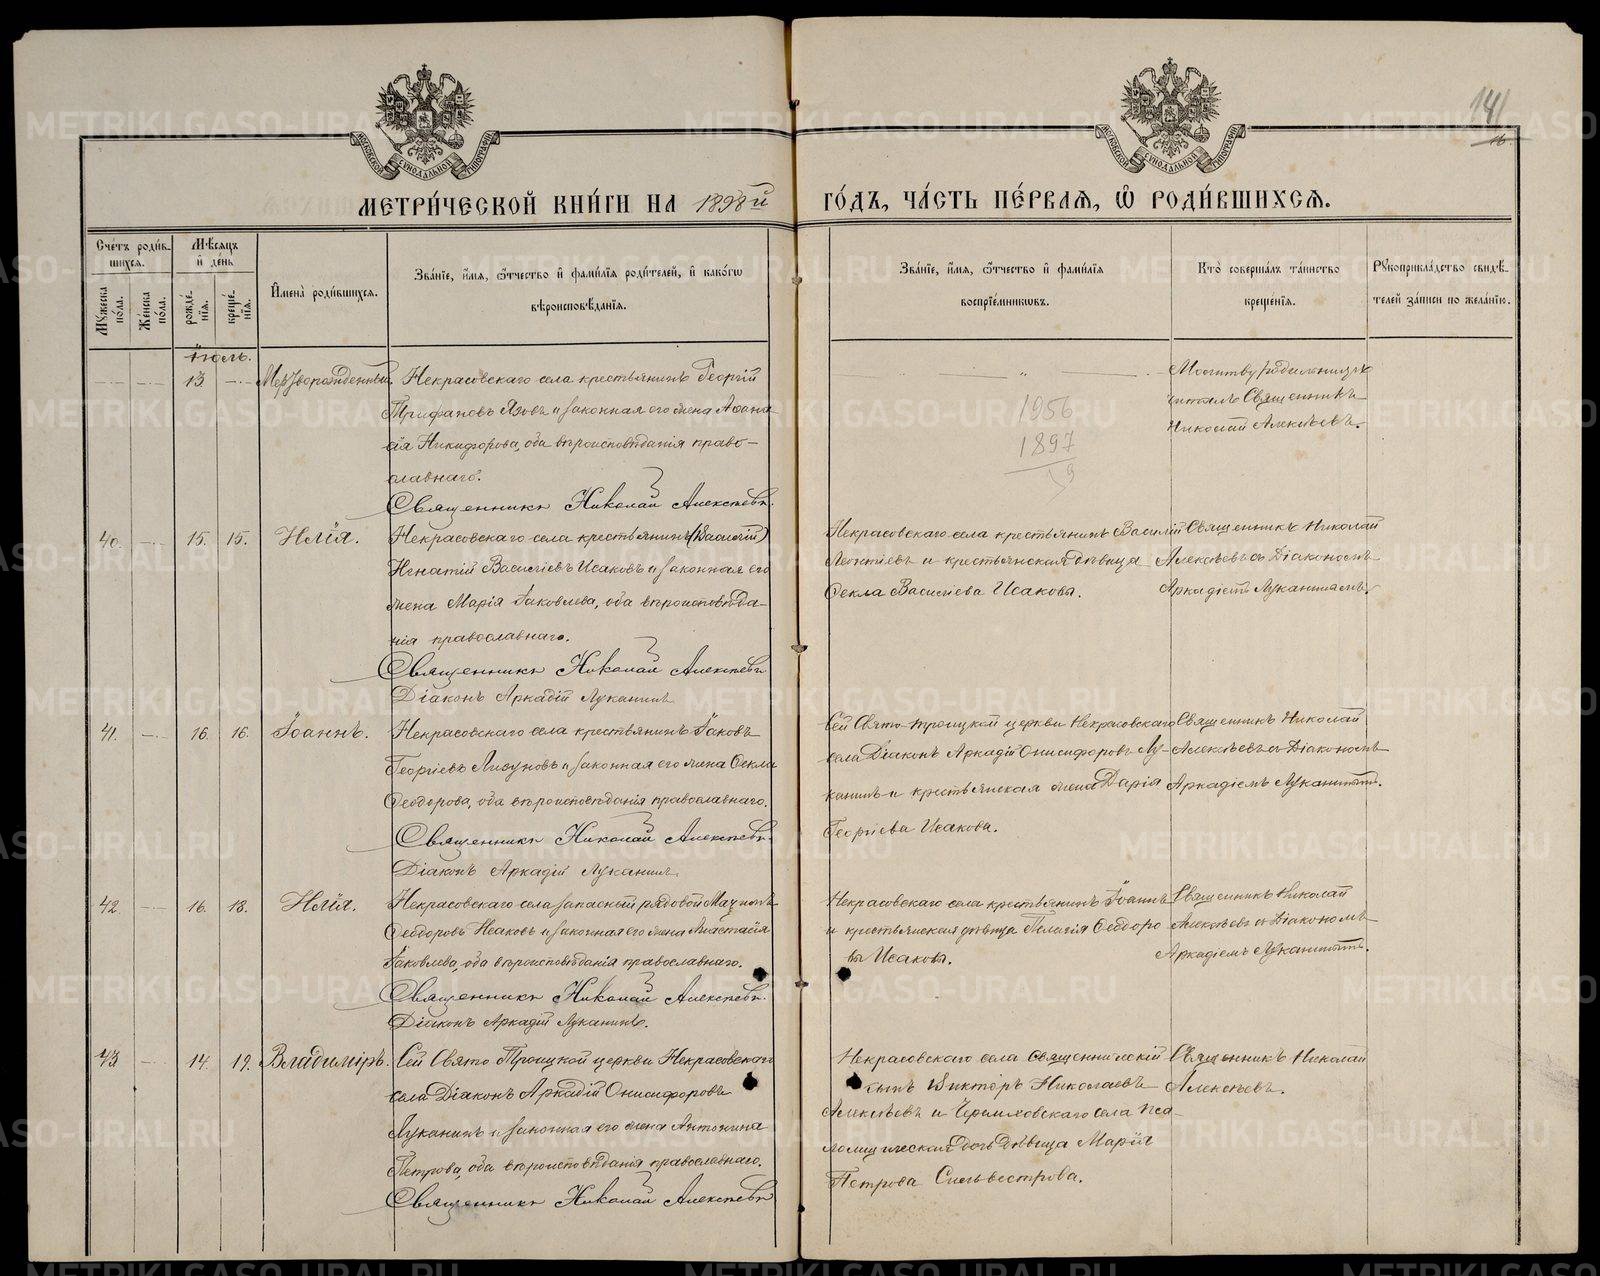 141
16
МЕТРИ́ЧЕСКОЙ КНИ́ГИ НА 1898й ГО́ДЪ, ЧА́СТЬ ПЕ́РВАѦ, Ѽ РОДИ́ВШИХСѦ.
Сче́тъ роди́в-
шихсѧ.
Мꙋжеска по́ла.
Же́нска по́ла.
Мѣ́сѧцъ
и҆ де́нь
рожде́-
нїѧ.
креще́-
нїѧ.
И҆мена̀ роди́вшихсѧ.
Зва́нїе, и҆́мѧ, ѻ҆́тчество и҆ фами́лїѧ роди́телей, и҆ како́гѡ
вѣроисповѣ́данїѧ.
Зва́нїе, и҆́мѧ, ѻ҆́тчество и҆ фами́лїѧ
воспрїе́мникѡвъ.
Кто̀ соверша́лъ та́инство
креще́нїѧ.
Рꙋкоприкла́дство свидѣ́-
телей за́писи по жела́нїю.
Іюль.
13
Мертворожденный.
Некрасовскаго села крестьянинъ Георгій
Трифановъ Язовъ и законная его жена Афана-
сія Никифорова, оба вѣроисповѣданія право-
славнаго.
Священникъ Николай Алексѣевъ.
1956
1897
Молитву родильницѣ
читалъ Священникъ
Николай Алексѣевъ.
40.
15.
15.
Илія.
Некрасовскаго села крестьянинъ (Василій)
Игнатій Васильевъ Исаковъ и законная его
жена Марія Іаковлева, оба вѣроисповѣда-
нія православнаго.
Священникъ Николай Алексѣевъ
Діаконъ Аркадій Луканинъ
Некрасовскаго села крестьянинъ Василій
Леонтіевъ и крестьянская дѣвица
Ѳекла Василіева Исаковы.
Священникъ Николай
Алексѣевъ съ Діакономъ
Аркадіемъ Луканинымъ.
41.
16.
16.
Іоаннъ.
Некрасовскаго села крестьянинъ Іаковъ
Георгіевъ Лизуновъ и законная его жена Ѳекла
Ѳеодорова, оба вѣроисповѣданія православнаго.
Священникъ Николай Алексѣевъ.
Діаконъ Аркадій Луканинъ
Сей Свято-Троицкой церкви Некрасовскаго
села Діаконъ Аркадій Онисифоровъ Лу-
канинъ и крестьянская жена Дарія
Георгіева Исакова.
Священникъ Николай
Алексѣевъ съ Діакономъ
Аркадіемъ Луканинымъ.
42.
16.
18.
Илія.
Некрасовскаго села запасный рядовой
Ѳеодоровъ Исаковъ и законная его жена Анастасія
Іаковлева, оба вѣроисповѣданія православнаго.
Священникъ Николай Алексѣевъ.
Діаконъ Аркадій Луканинъ.
Некрасовскаго села крестьянинъ Іоаннъ
и крестьянская дѣвица Пелагія Ѳеодоро
вы Исаковы.
Священникъ Николай
Алексѣевъ съ Діакономъ
Аркадіемъ Луканинымъ.
43
14.
19.
Владиміръ.
Сей Свято Троицкой церкви Некрасовскаго
села Діаконъ Аркадій Онисифоровъ
Луканинъ и законная его жена Антонина
Петрова, оба вѣроисповѣданія православнаго.
Священникъ Николай Алексѣевъ
Некрасовскаго села Священническій
сынъ Викторъ Николаевъ
Алексѣевъ и Черемховскаго села Пса-
ломщическая дочь дѣвица Марія
Петрова Сильвестрова.
Священникъ Николай
Алексѣевъ.
METRIKI.GASO-URAL.RU